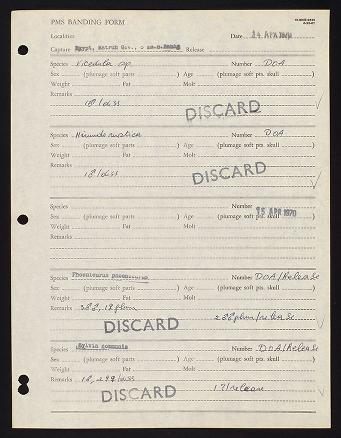 PMS BANDING FORM
Localities Date 14 APR 1970
Capture Egypt, Matruh Gov., Release
Species Ficedula sp. Number DOA
Sex (plumage soft parts ) Age (plumage soft pts. skull )
Weight Fat Molt
Remarks
1♂/diss
DISCARD
Species Hirundo rustica Number DOA
Sex (plumage soft parts ) Age (plumage soft pts. skull )
Weight Fat Molt
Remarks 1♂/diss
DISCARD
Species Number
15 APR 1970
Sex (plumage soft parts ) Age (plumage soft pts. skull )
Weight Fat Molt
Remarks
Species Phoenicurus phoenicurus Number DOA/Release
Sex (plumage soft parts ) Age (plumage soft pts. skull )
Weight Fat Molt
Remarks
DISCARD
Species Sylvia communis Number DOA/Release
Sex (plumage soft parts ) Age (plumage soft pts. skull )
Weight Fat Molt
Remarks 1♂, 2♀♀/diss 1?/release
DISCARD